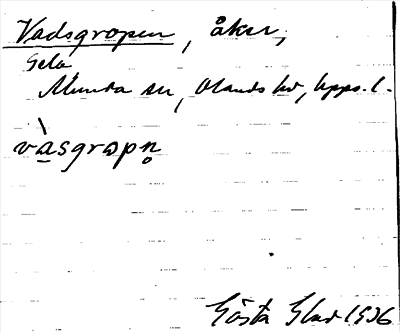 Vadsgropen, åker,
Gela
Munda sn, Olands hd, Upps. l.
vàsgropn̥
Gösta Glad 1936